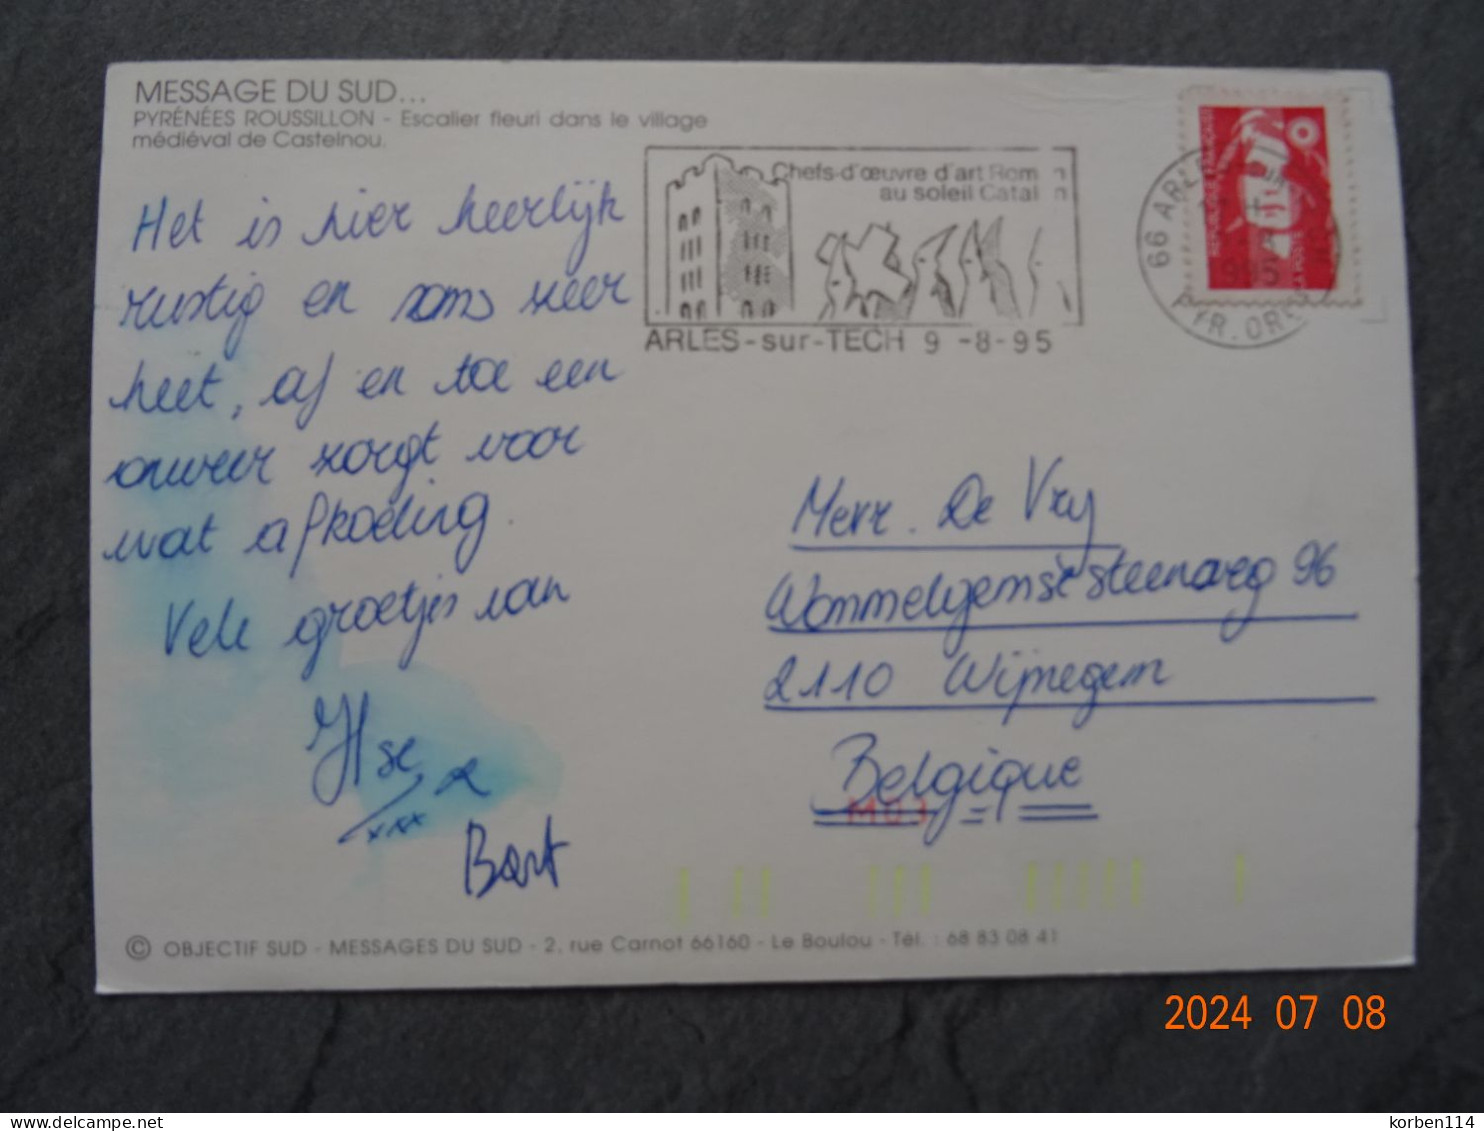 MESSAGE DU SUD...
PYRÉNÉES ROUSSILLON - Escalier fleuri dans le village
médiéval de Castelnou.
Het is hier heerlijk
rustig en soms zeer
heet, af en toe een
onweer zorgt voor
wat afkoeling.
Vele groetjes van
Ilse &
xxx
Bart
Chefs-d'œuvre d'art Rom n
au soleil Catal n
ARLES-sur-TECH 9 -8-95
66 ARLES
PYR. OR
1995
REPUBLIQUE FRANÇAISE
LA POSTE
Merr. De Vry
Wommelgemse steenweg 96
2110 Wijnegem
Belgique
M03
© OBJECTIF SUD - MESSAGES DU SUD - 2, rue Carnot 66160 - Le Boulou - Tél. : 68 83 08 41
2024 07 08
delcampe.net
korben114